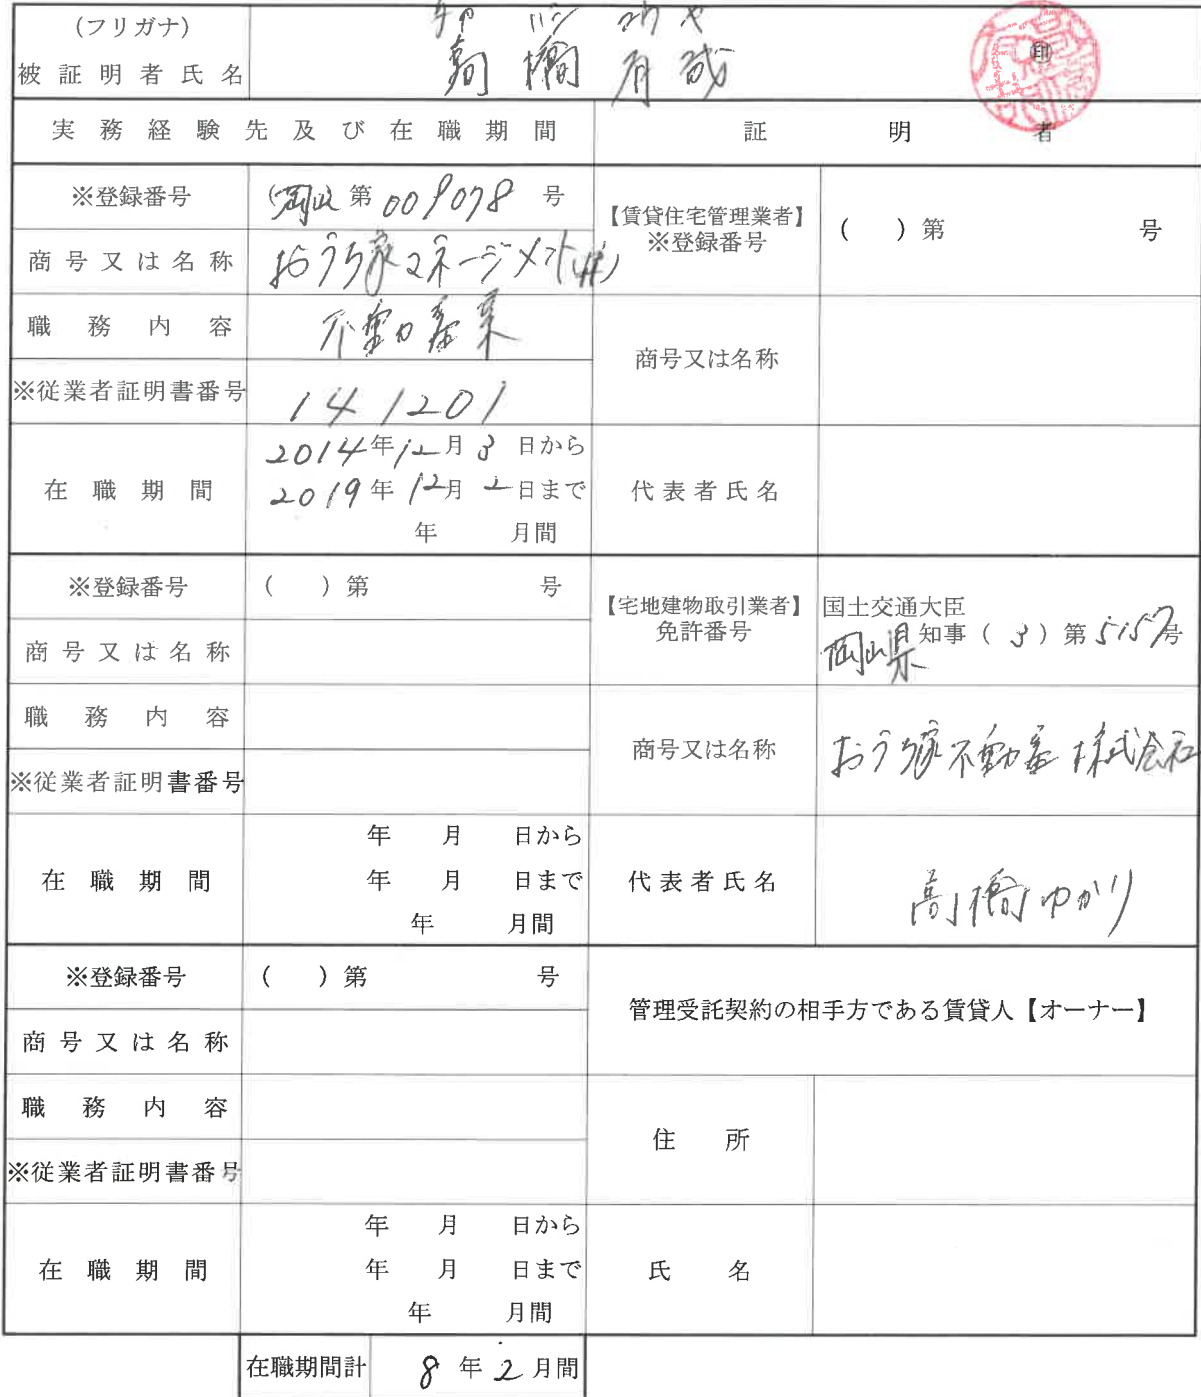 (フリガナ)
被証明者氏名 高橋 有哉 ㊞
実務経験先及び在職期間 証明者
※登録番号 (岡山 第009078号
商号又は名称 おうち家マネージメント(株)
職務内容 不動産業
※従業者証明書番号 141201
在職期間 2014年12月3日から
2019年12月2日まで
年 月間
【賃貸住宅管理業者】
※登録番号 ( )第 号
商号又は名称
代表者氏名
※登録番号 ( )第 号
商号又は名称
職務内容
※従業者証明書番号
在職期間 年 月 日から
年 月 日まで
年 月間
【宅地建物取引業者】
免許番号
国土交通大臣
岡山県知事(3)第5157号
商号又は名称 おうち家不動産株式会社
代表者氏名 高橋ゆかり
※登録番号 ( )第 号
商号又は名称
職務内容
※従業者証明書番号
在職期間 年 月 日から
年 月 日まで
年 月間
管理受託契約の相手方である賃貸人【オーナー】
住所
氏名
在職期間計 8年2月間